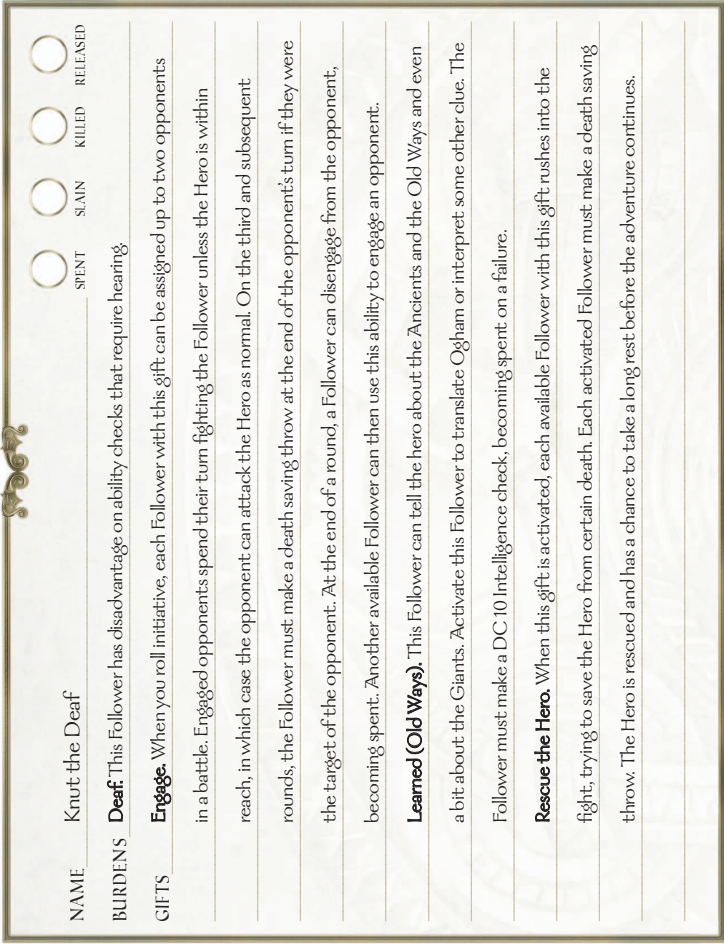 SPENT SLAIN KILLED RELEASED
NAME Knut the Deaf
BURDENS Deaf. This Follower has disadvantage on ability checks that require hearing.
GIFTS Engage. When you roll initiative, each Follower with this gift can be assigned up to two opponents
in a battle. Engaged opponents spend their turn fighting the Follower unless the Hero is within
reach, in which case the opponent can attack the Hero as normal. On the third and subsequent
rounds, the Follower must make a death saving throw at the end of the opponent's turn if they were
the target of the opponent. At the end of a round, a Follower can disengage from the opponent,
becoming spent. Another available Follower can then use this ability to engage an opponent.
Learned (Old Ways). This Follower can tell the hero about the Ancients and the Old Ways and even
a bit about the Giants. Activate this Follower to translate Ogham or interpret some other clue. The
Follower must make a DC 10 Intelligence check, becoming spent on a failure.
Rescue the Hero. When this gift is activated, each available Follower with this gift rushes into the
fight, trying to save the Hero from certain death. Each activated Follower must make a death saving
throw. The Hero is rescued and has a chance to take a long rest before the adventure continues.